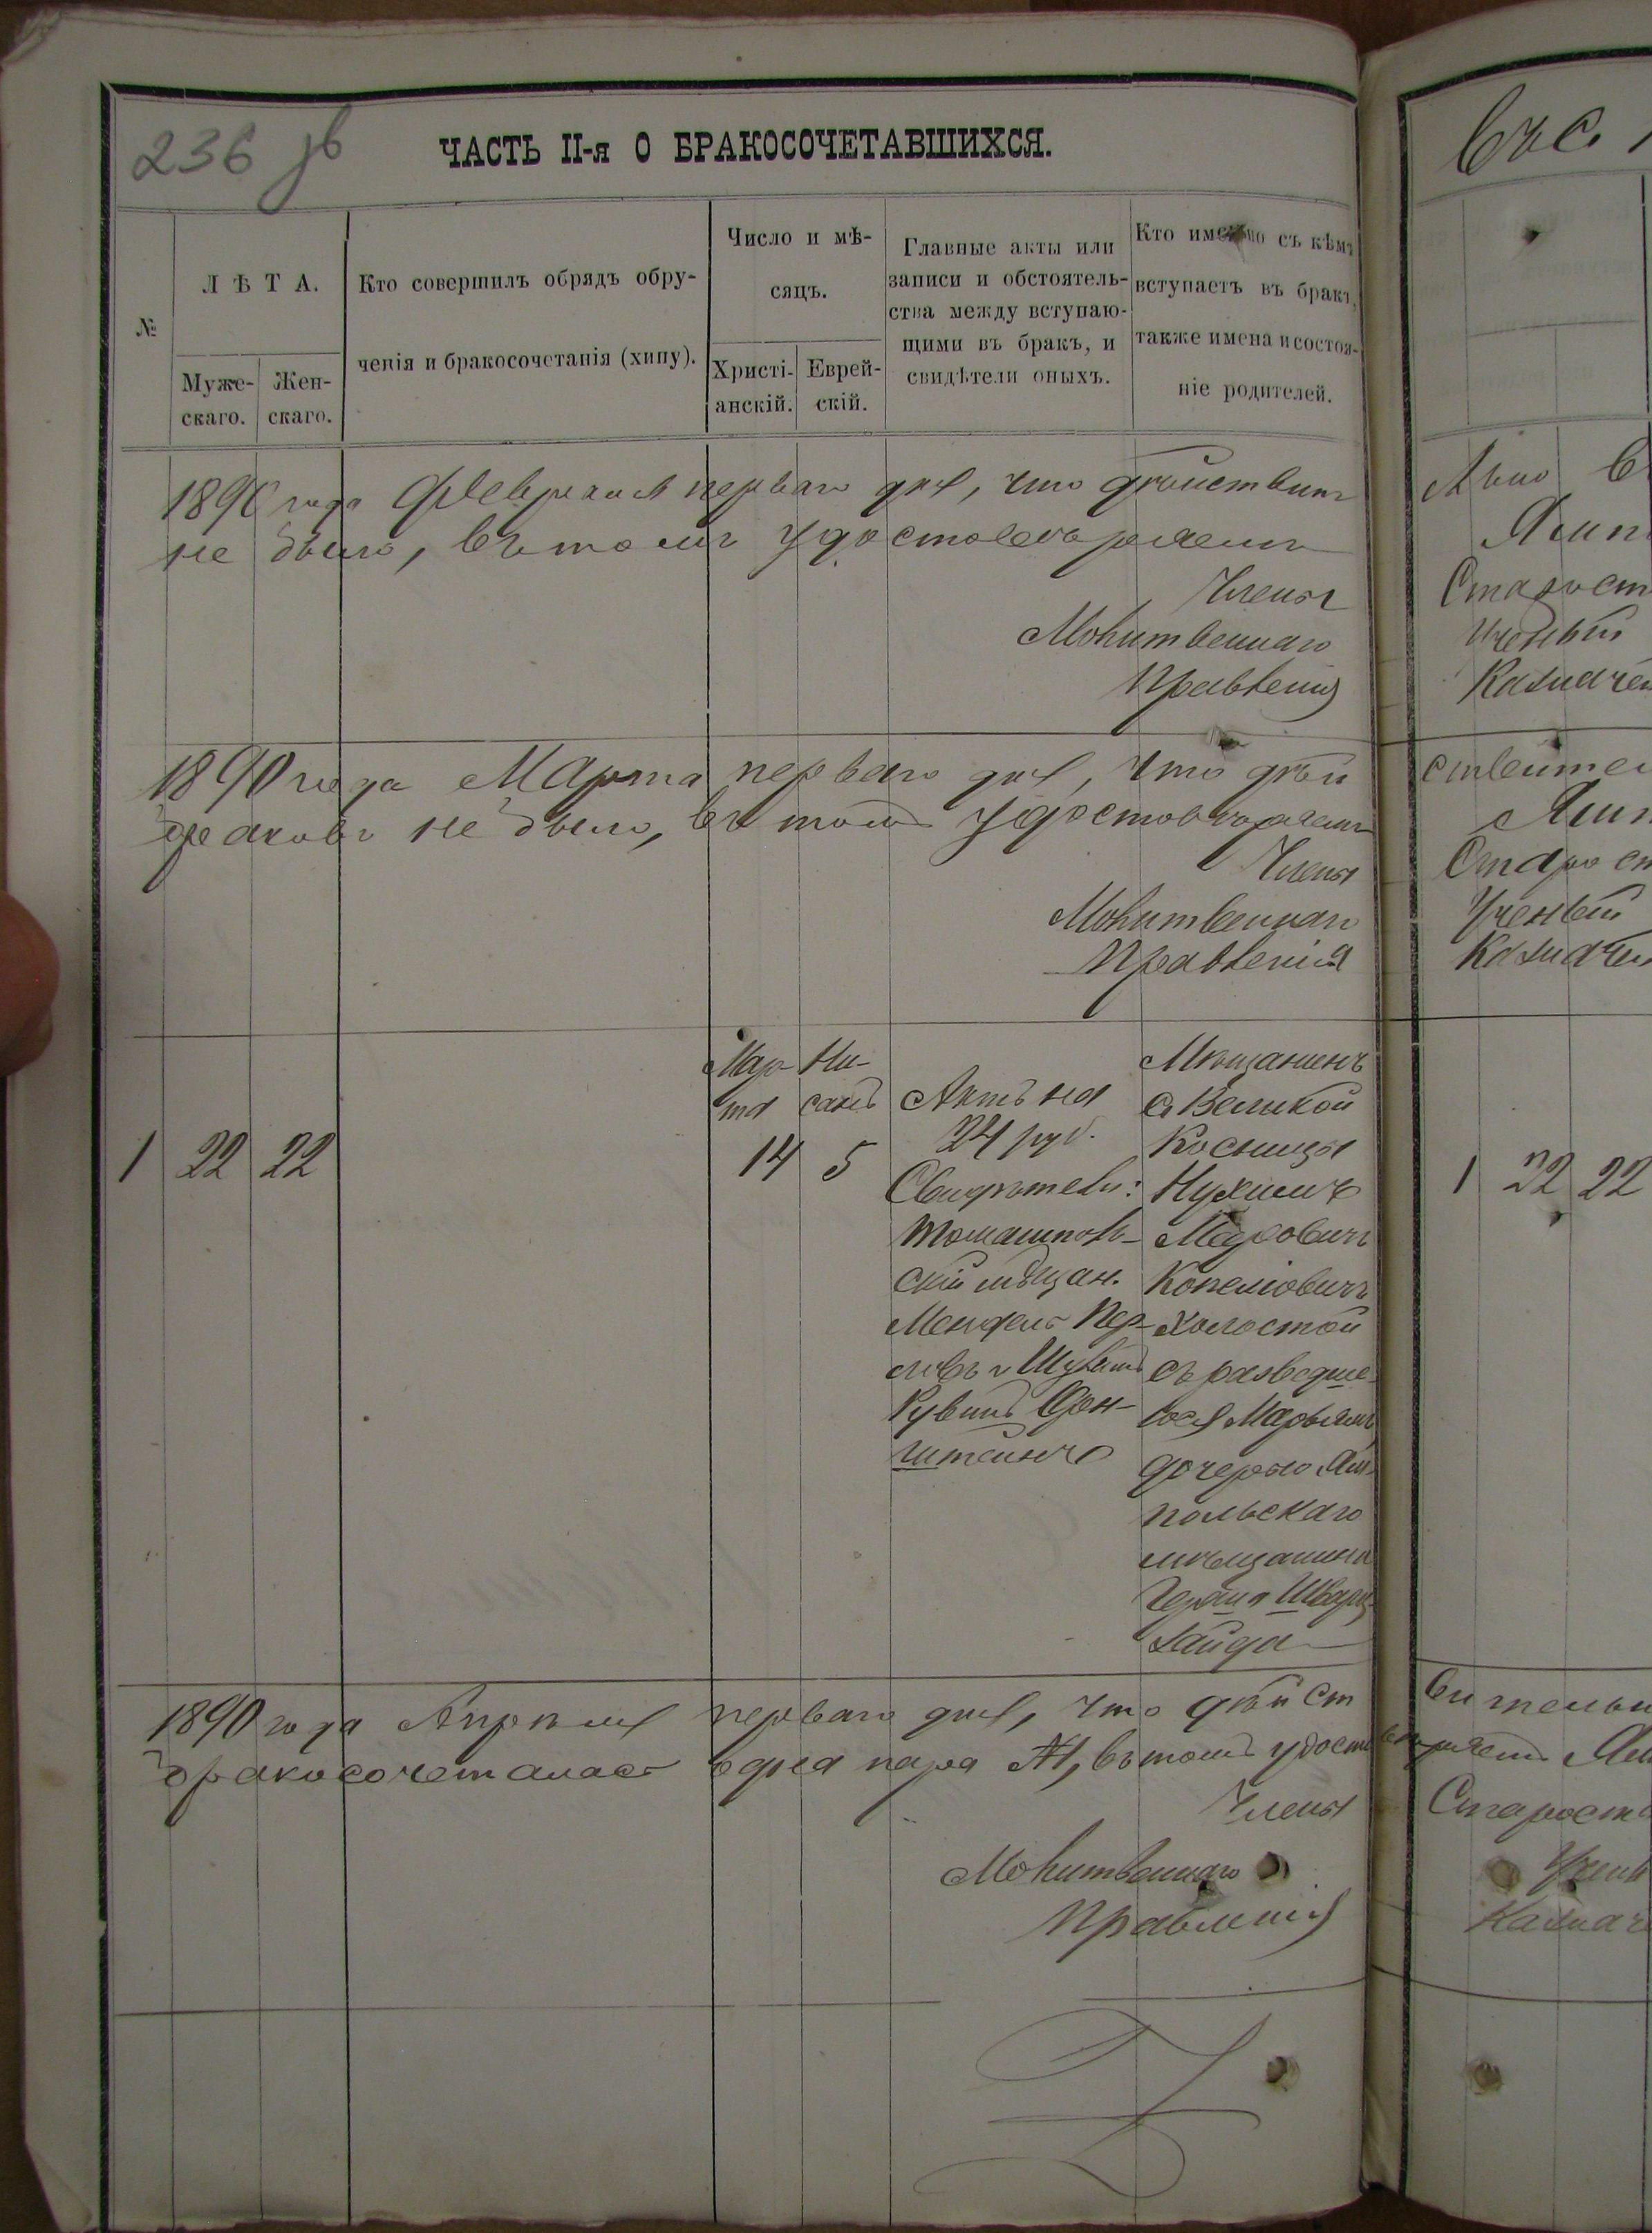 236 зв
ЧАСТЬ II-я О БРАКОСОЧЕТАВШИХСЯ.
№
ЛѢТА.
Муже-
скаго.
Жен-
скаго.
Кто совершилъ обрядъ обру-
ченія и бракосочетанія (хипу).
Число и мѣ-
сяцъ.
Христі-
анскій.
Еврей-
скій.
Главные акты или
записи и обстоятель-
ства между вступаю-
щими въ бракъ, и
свидѣтели оныхъ.
Кто именно съ кѣмъ
вступаетъ въ бракъ,
также имена и состоя-
ніе родителей.
1890 года Февраля перваго дня, что дѣйствит
не было, въ томъ удостовѣряемъ
Члены
Молитвеннаго
Правленія
1890 года Марта перваго дня, что дѣй
браковъ не было, въ томъ удостовѣряемъ
Члены
Молитвеннаго
Правленія
1 22 22
Мар-
та
14
Ни-
санъ
5
Актъ на
24 руб.
Свидѣтели:
Томашполь-
скій мѣщан.
Мендель Пер-
и
Рувинъ
штейнъ
Мѣщанинъ
с. Великой
Косницы
Нухимъ
Копелiовичъ
холостой
съ разведше-
юся Марьямъ
дочерью Ям-
польскаго
мѣщанина
Герша Шварц-
зайда
1890 года Апрѣля перваго дня, что дѣйст
бракосочеталась одна пара №1, въ томъ удосто
Члены
Молитвеннаго
Правленія
Старост
Ученый
Казначей
Старост
Ученый
Казначей
1 22 22
вительн
Старост
Учены
Казначе